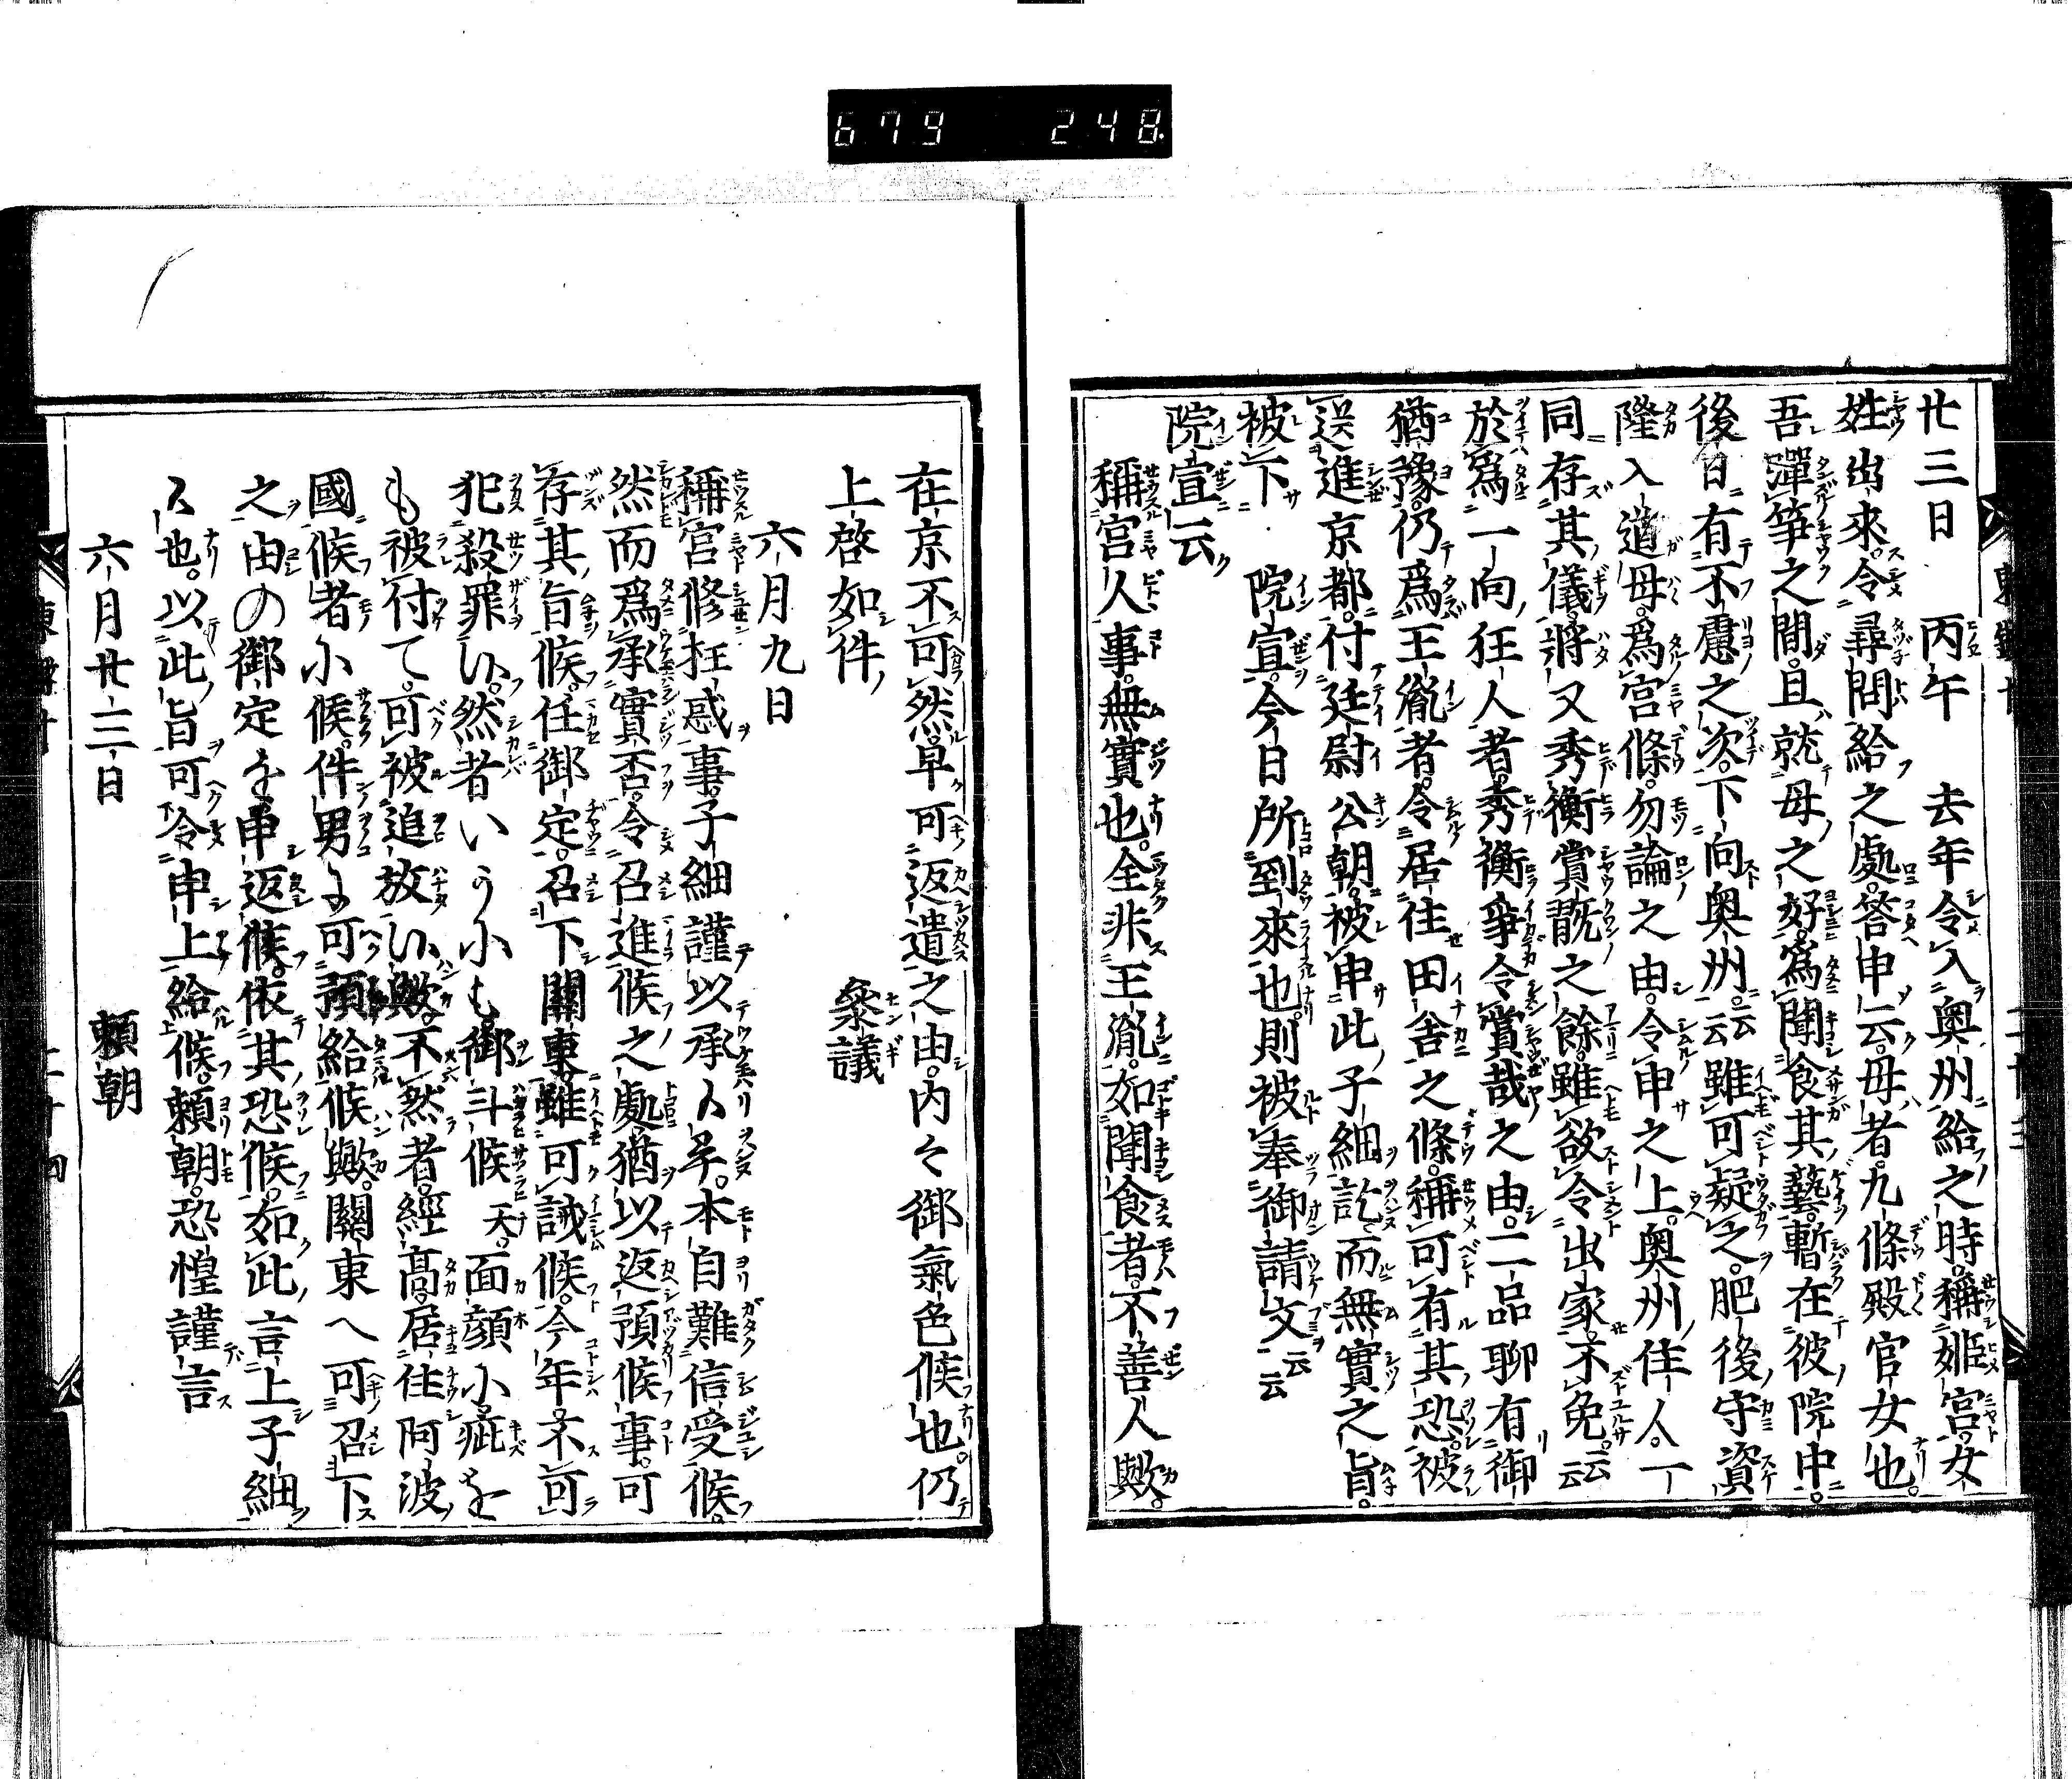 679 248
廿三日 丙午 去年令入奥州給之時稱姫宮女
姓出來令尋問給之處答申云母者九條殿官女也
吾彈箏之間且就母之好爲聞食其藝暫在彼院中
後日有不慮之次下向奥州云云雖可疑之肥後守資
隆入道母爲宮條勿論之由令申之上奥州住人一
同存其儀將又秀衡賞翫之餘雖欲令出家不免云云
於爲一向狂人者秀衡爭令賞哉之由二品聊有御
猶豫仍爲王胤者令居住田舍之條稱可有其恐被
送進京都付廷尉公朝被申此子細訖而無實之旨
被下 院宣今日所到來也則被奉御請文云云
院宣云
稱宮人事無實也全非王胤如聞食者不善人歟
在京不可然早可返遣之由内々御氣色候也仍
上啓如件
六月九日 參議
稱宮修狂惑事子細謹以承候畢本自難信受候
然而爲承實否令召進候之處猶以返預候事可
存其旨候任御定召下關東雖可誡候今年不可
犯殺罪候然者いかにも御斗候天面顔に疵を
も被付て可被追放候歟不然者經高居住阿波
國候者に候件男に可預給候歟關東へ可召下
之由の御定を申返候依其恐候如此言上子細
候也以此旨可令申上給候頼朝恐惶謹言
六月廿三日 頼朝